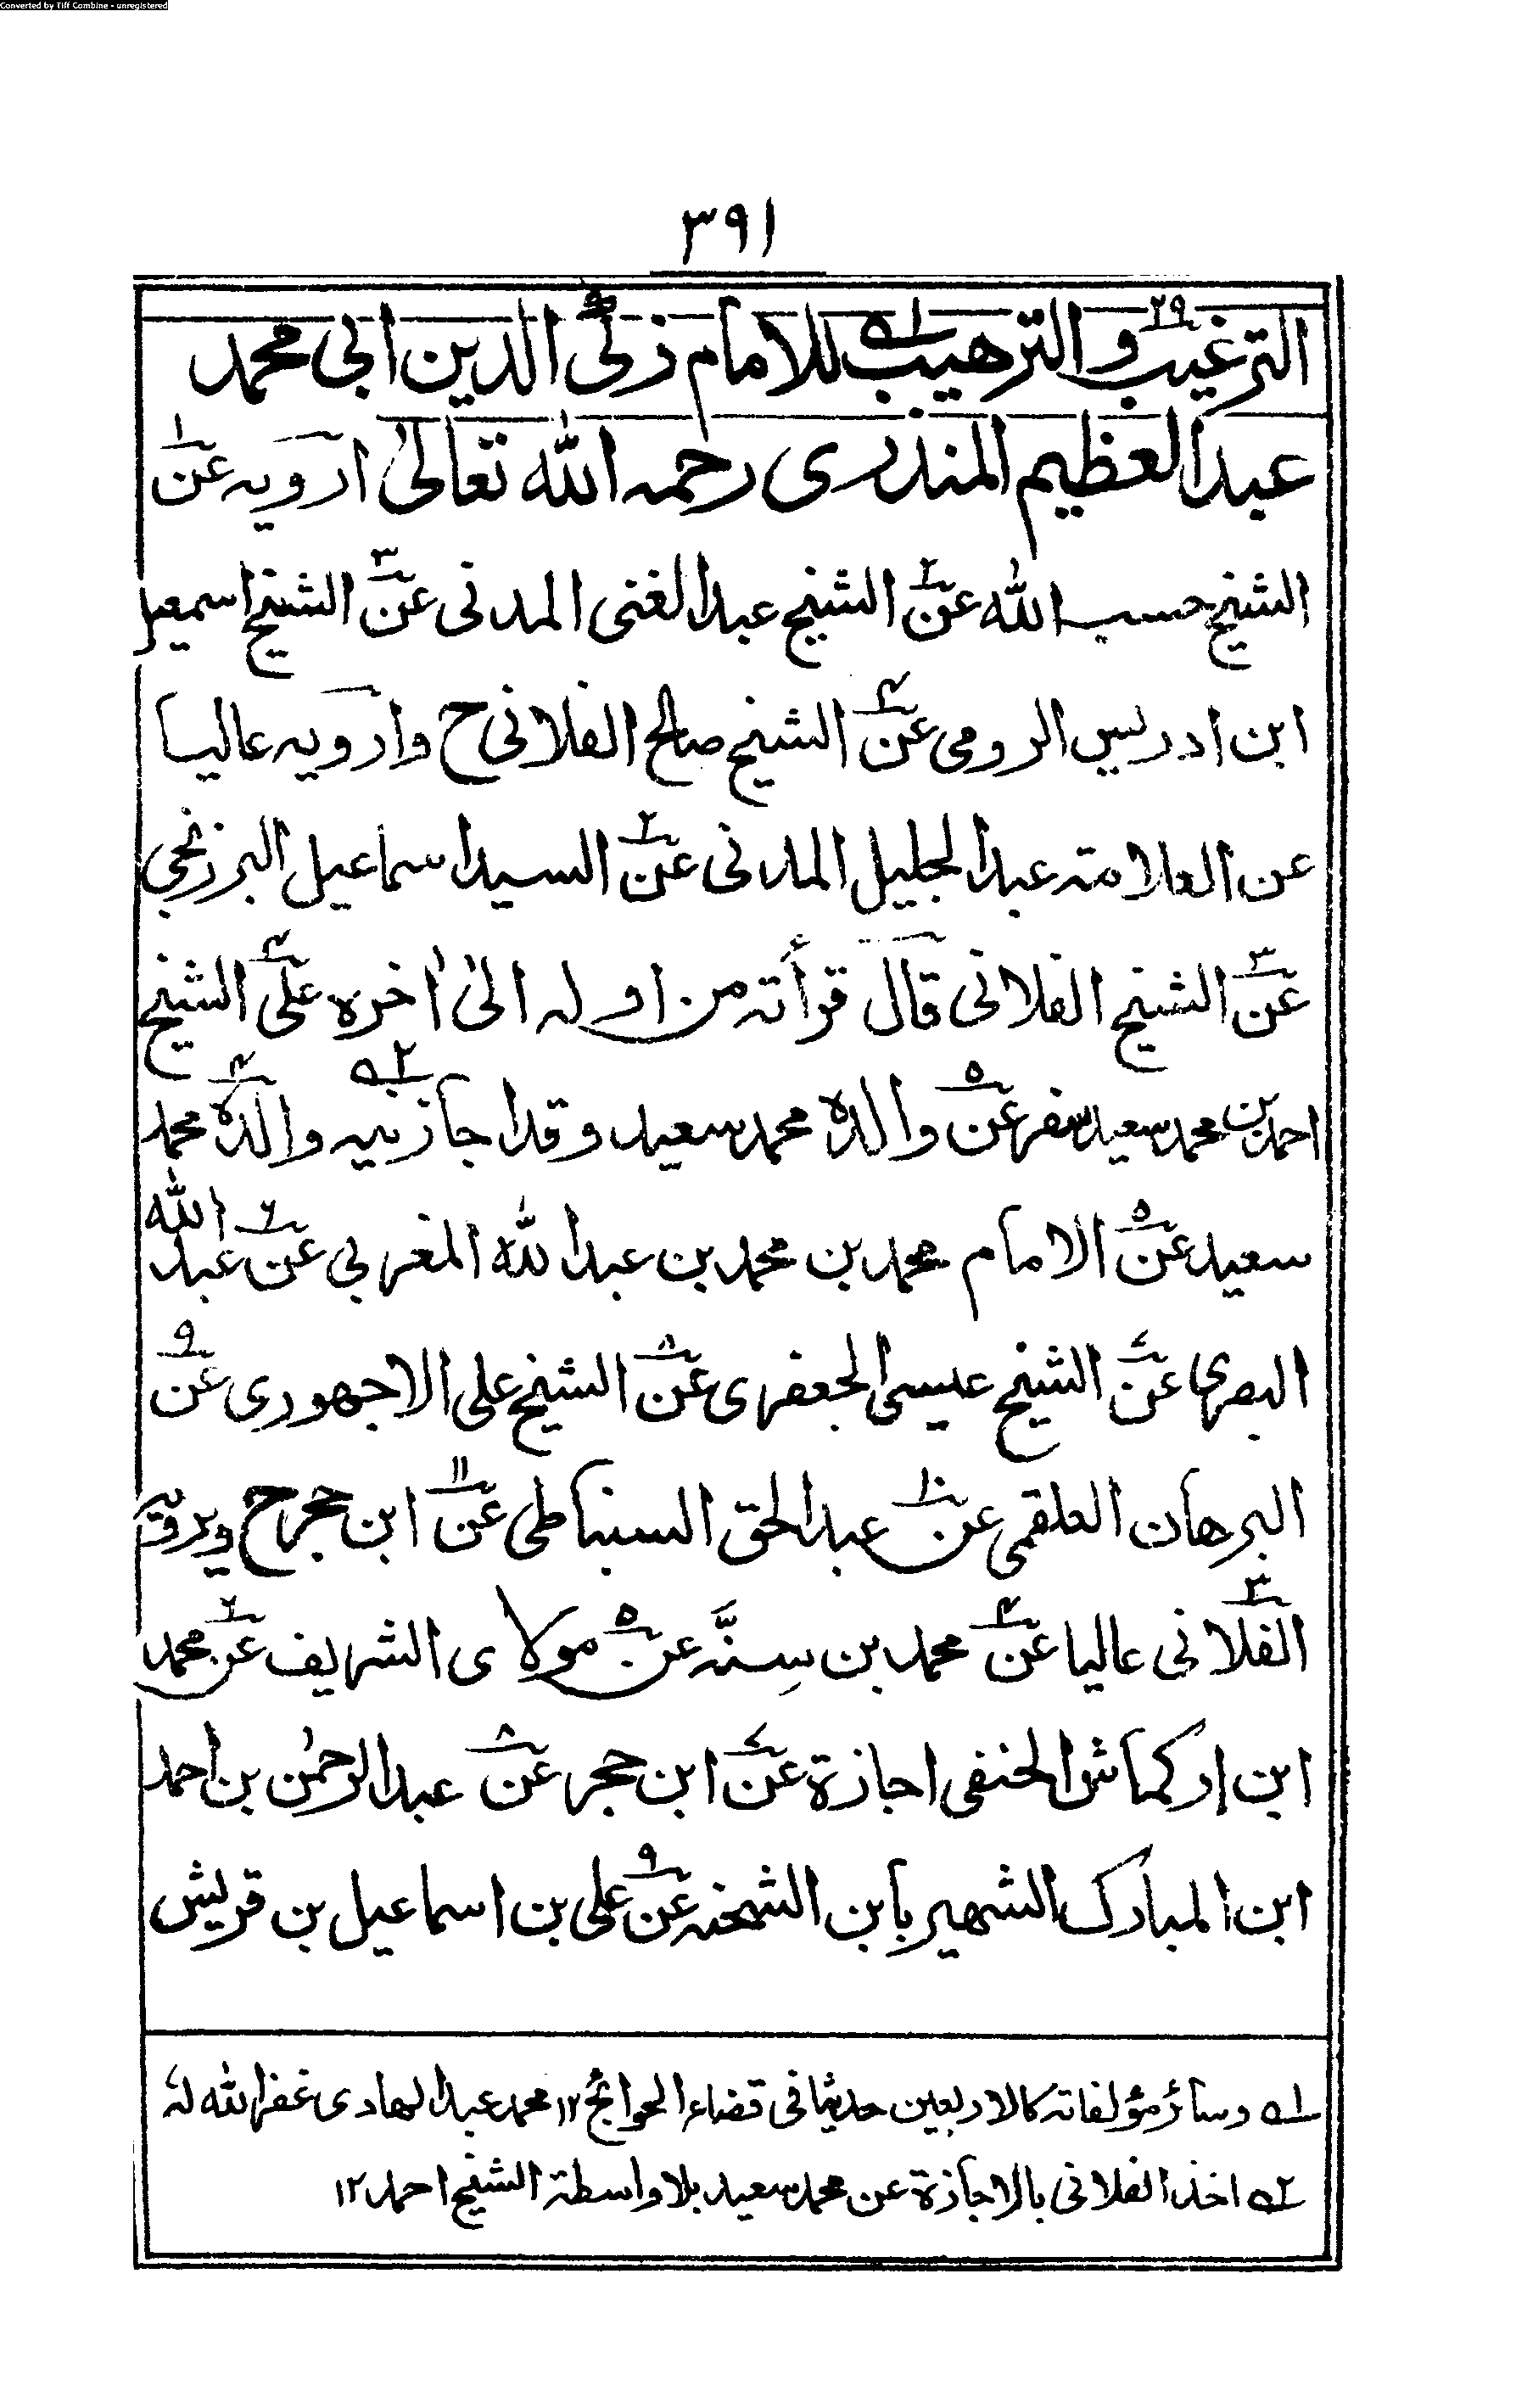 Converted by Tiff Combine - unregistered
٣٩١
الترغيب٢٩ والترهيب١ه للامام زكی الدين ابی محمد
عبد العظيم المنذری رحمه الله تعالیٰ ارويه عن١
الشيخ حسب الله عن٢ الشيخ عبد الغنی المدنی عن٣ الشيخ اسمعيل
ابن ادريس الرومی عن٤ الشيخ صالح الفلانی ح وارويه عاليا
عن العلامة عبد الجليل المدنی عن٢ السيد اسماعيل البرزنجی
عن٣ الشيخ الفلانی قال قرأته من اوله الیٰ اٰخره علی٤ الشيخ
احمد بن محمد سعيد سفر عن٥ والده محمد سعيد وقد اجازنيه٢ه والده٤ محمد
سعيد عن٥ الامام محمد بن محمد بن عبد الله المغربی عن٦ عبد الله
البصری عن٧ الشيخ عيسی الجعفری عن٨ الشيخ علی الاجهوری عن٩
البرهان العلقمی عن١٠ عبد الحق السنباطی عن١١ ابن حجر ح ويرويه
الفلانی٣ عاليا عن٤ محمد بن سِنَّه عن٥ مولای الشريف عن٦ محمد
ابن إركماش الحنفی اجازة عن٧ ابن حجر عن٨ عبد الرحمٰن بن احمد
ابن المبارك الشهير بابن الشحنه عن٩ علی بن اسماعيل بن قريش
١ه وسائر مؤلفاته كالاربعين حديثا فی قضاء الحوائج ١٢ محمد عبد الهادی غفر الله له
٢ه اخذ الفلانی بالاجازة عن محمد سعيد بلا واسطة الشيخ احمد ١٢